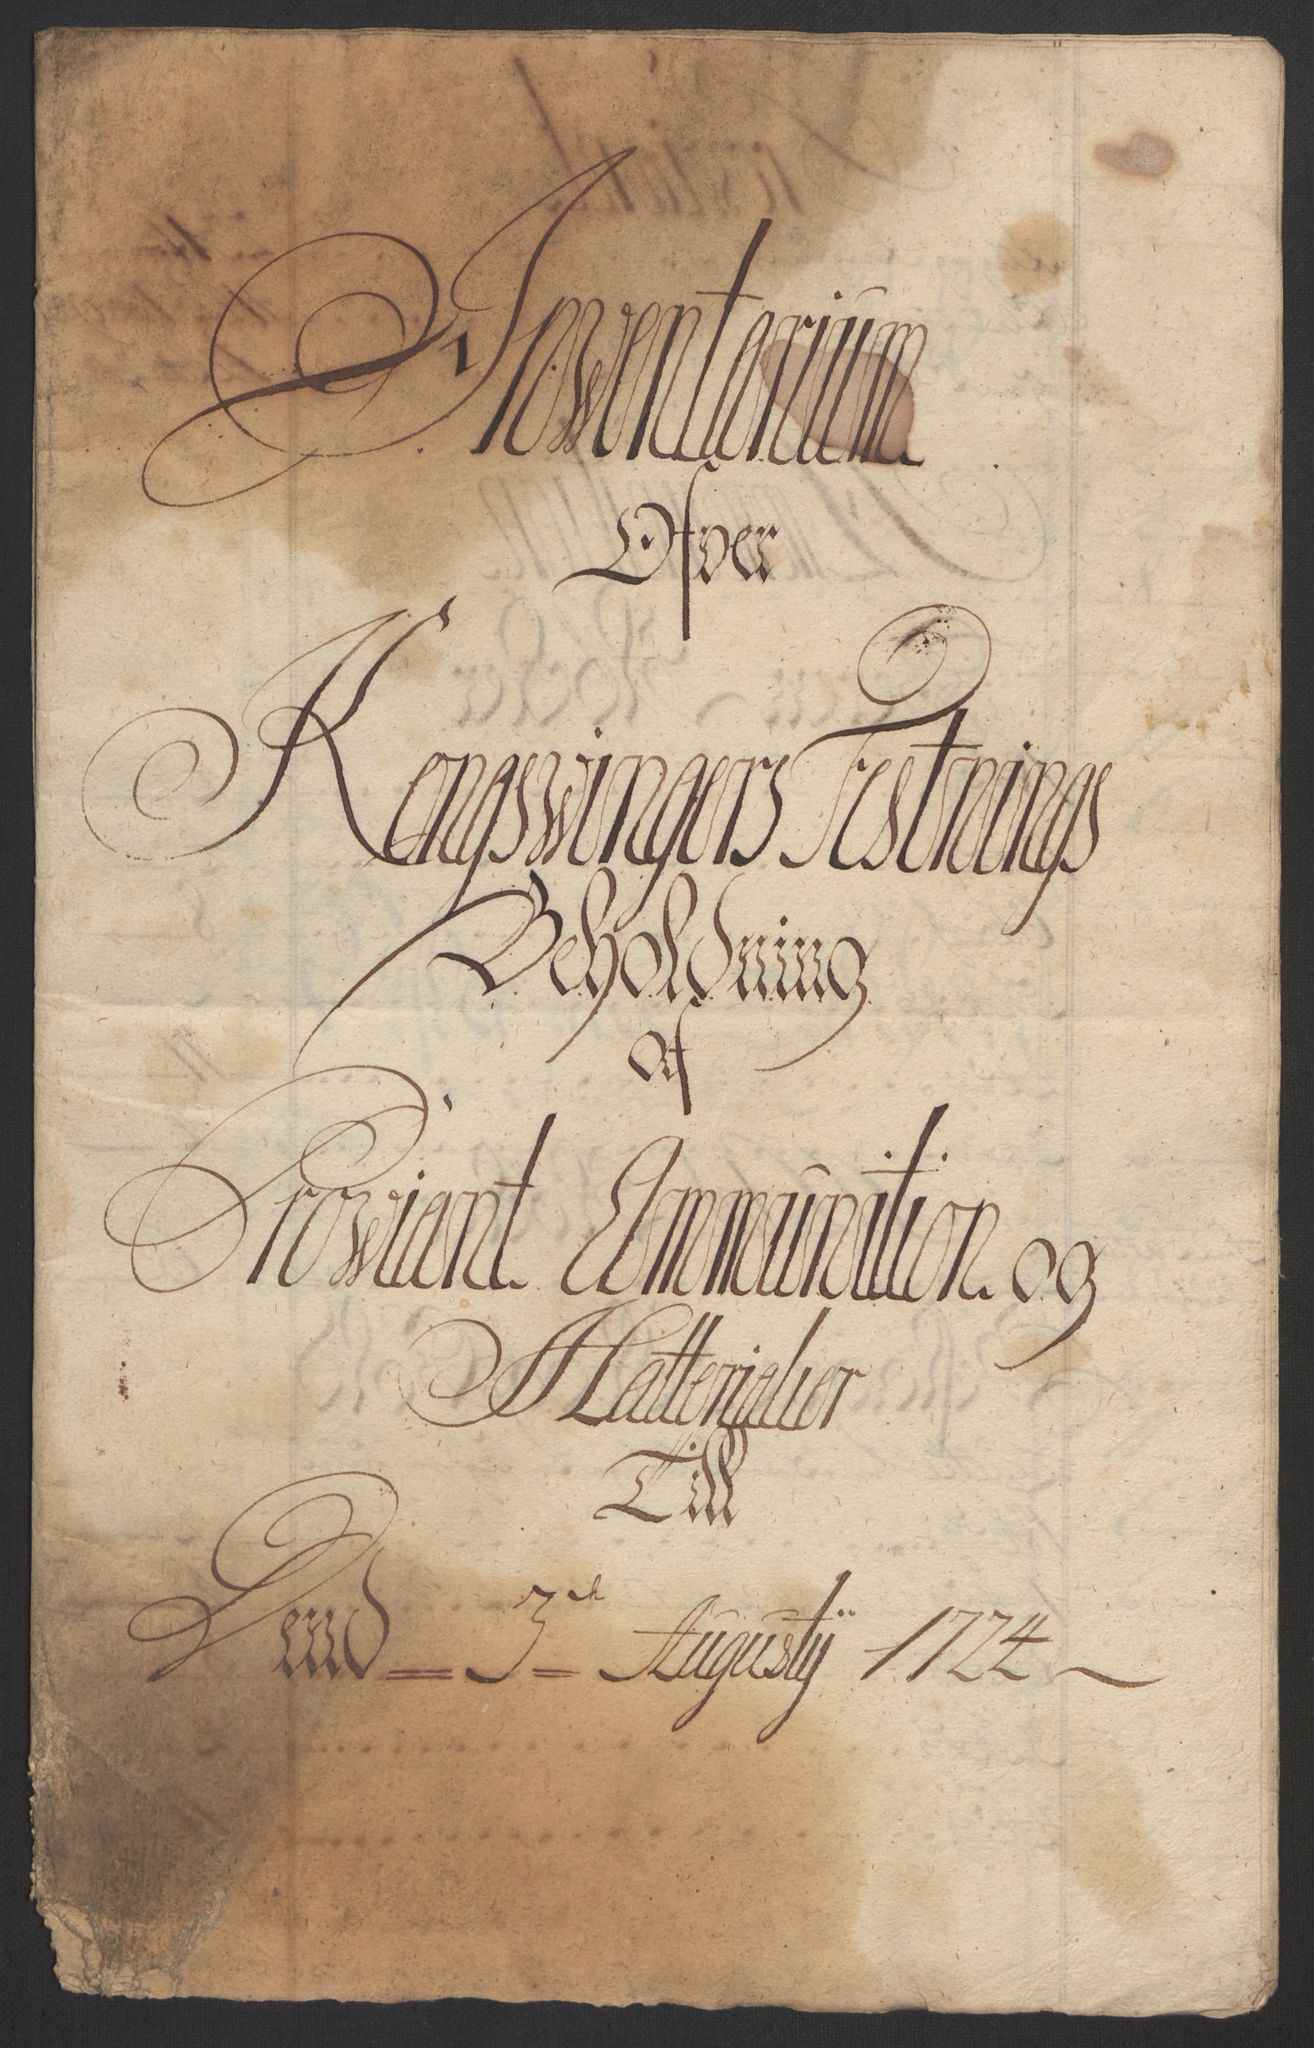 Inventarium
Ofver
Kongswingers Festnings
Beholdning
af
Prowiant Ammunition og
Matterialier
Till
Dend 3 Augustij 1724